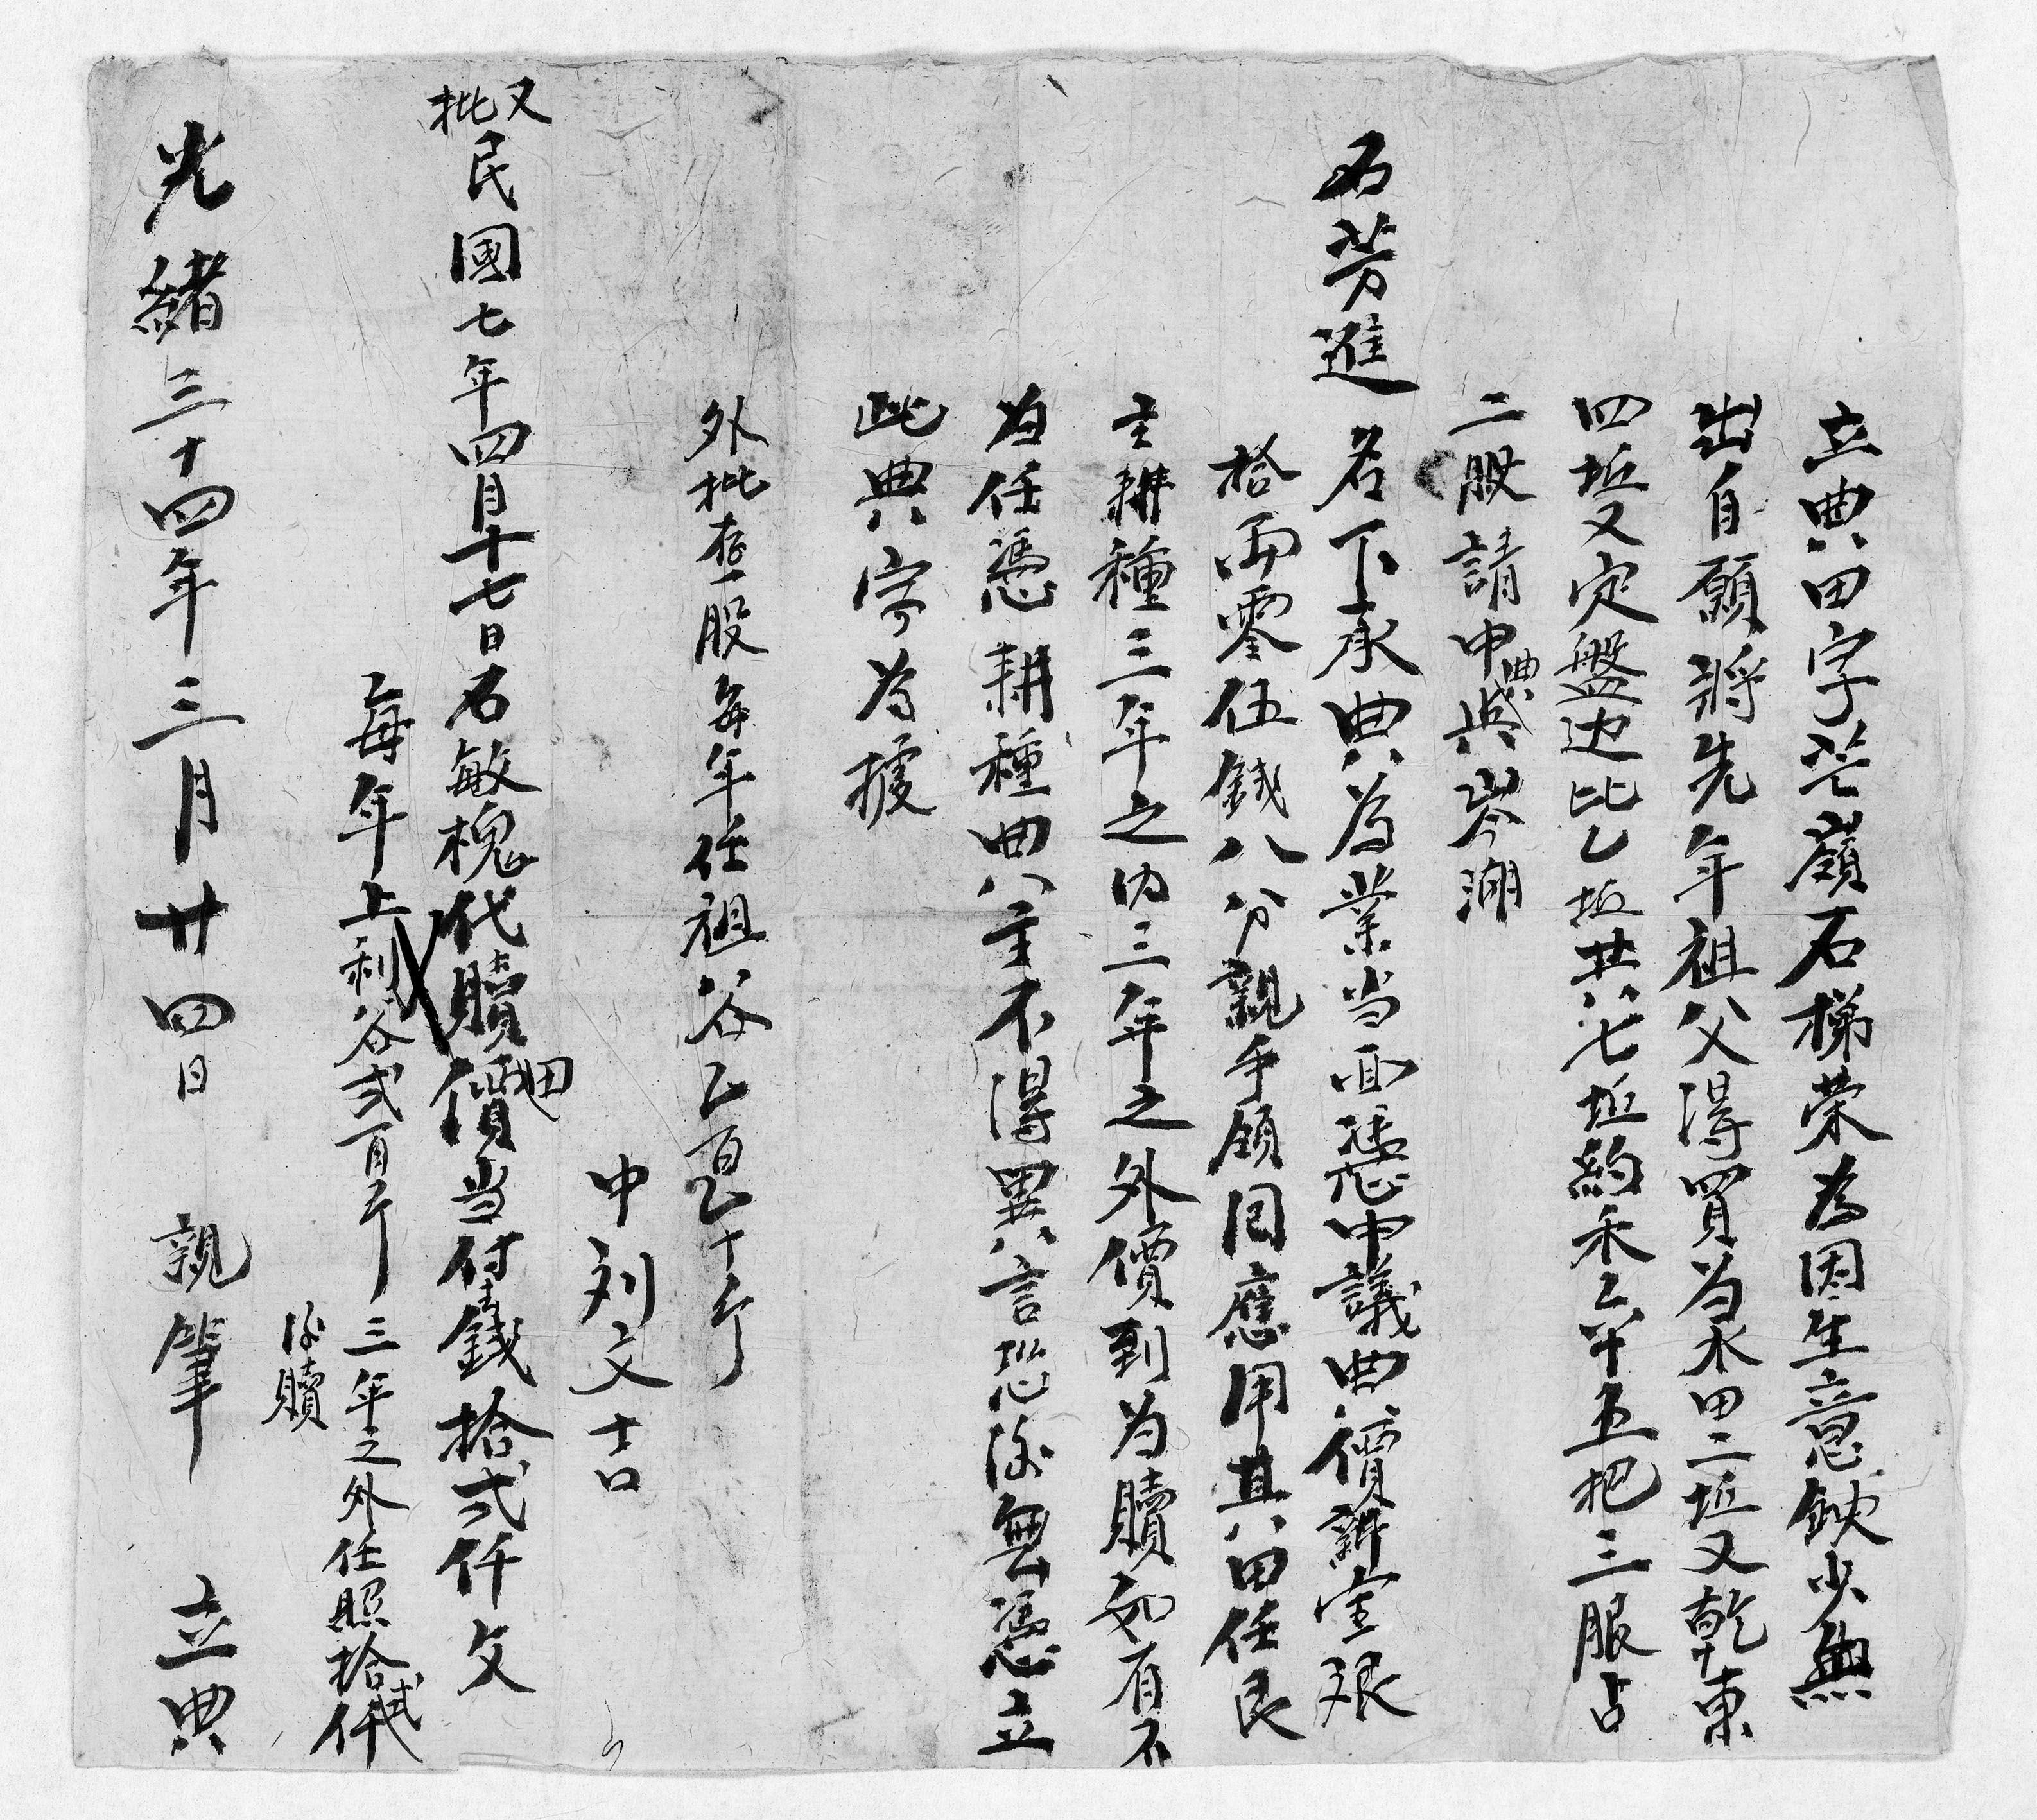 立典田字芒嶺石梯荣為因生意缺少無
出自願將先年祖父得買為水田二坵又乾東
四坵又定盤边比乙坵共七坵約禾六十五把三服占
二股請中典與岑潮
石芳進名下承典為業当面憑中議典價訢定艮
拾両零伍錢八分親手領囬應用其田任艮
主耕種三年之内三年之外價到为贖如有不
为任憑耕種典主不得異言恐後無憑立
此典字為據
外批存一股每年任祖谷乙百乙十斤
中刘文吉
又批民國七年四月十七日石敏槐代贖田價当付錢拾弍仟文
每年上利谷弍百斤三年之外任照拾弍仟
後贖
光緒三十四年三月廿四日親筆立典